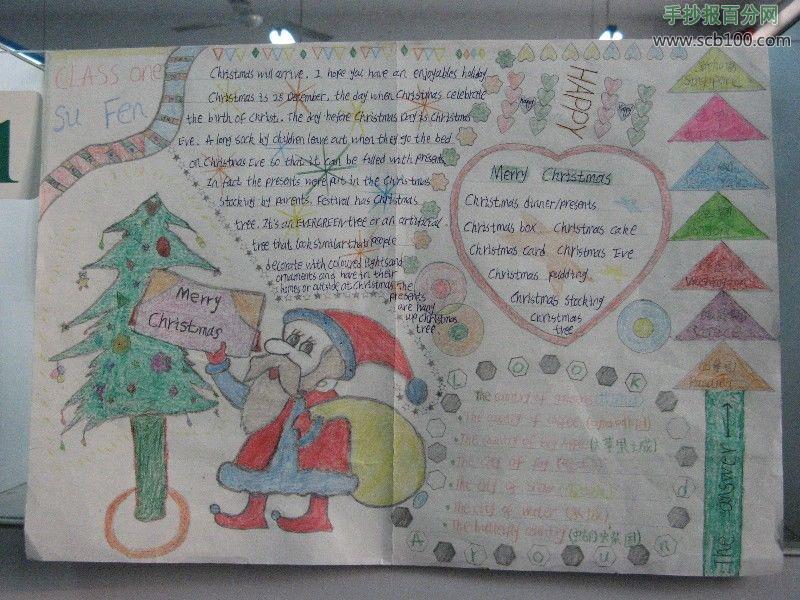 手抄报百分网
www.scb100.com
CLASS one
Su Fen
Christmas will arrive. I hope you have an enjoyables holiday
Christmas is 25 December, the day when Christmas celebrate
the birth of Christ. The day before Christmas Day is Christmas
Eve. A long sock by children leave out when they go the bed
on Christmas Eve so that it can be filled with presents
In fact the presents were put in the Christmas
stocking by parents. Festival has Christmas
tree. It's an EVERGREEN tree or an artificial
tree that look similar that people
decorate with coloured lights and
ornaments and have in their
homes or outside at Christmas. The
presents
are hang
up Christmas
tree
HAPPY
Merry Christmas
Christmas dinner/presents
Christmas box Christmas cake
Christmas card Christmas Eve
Christmas pudding
Christmas stocking
Christmas
tree
Merry
Christmas
Singapore
Washington
LOOK
The country of
The country of
The country of
The city of
The city of
The city of water
The butterfly country
Around
The answer